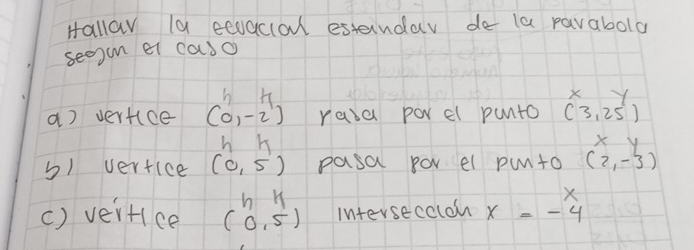 Hallar la ecuacial estandar de la parabola
seegun el caso
h k x y
a) vertice (0,-2) pasa por el punto (3,25)
h k x y
b) vertice (0,5) pasa por el punto (2,-3)
h k x
c) vertice (0,5) intersección x = -4